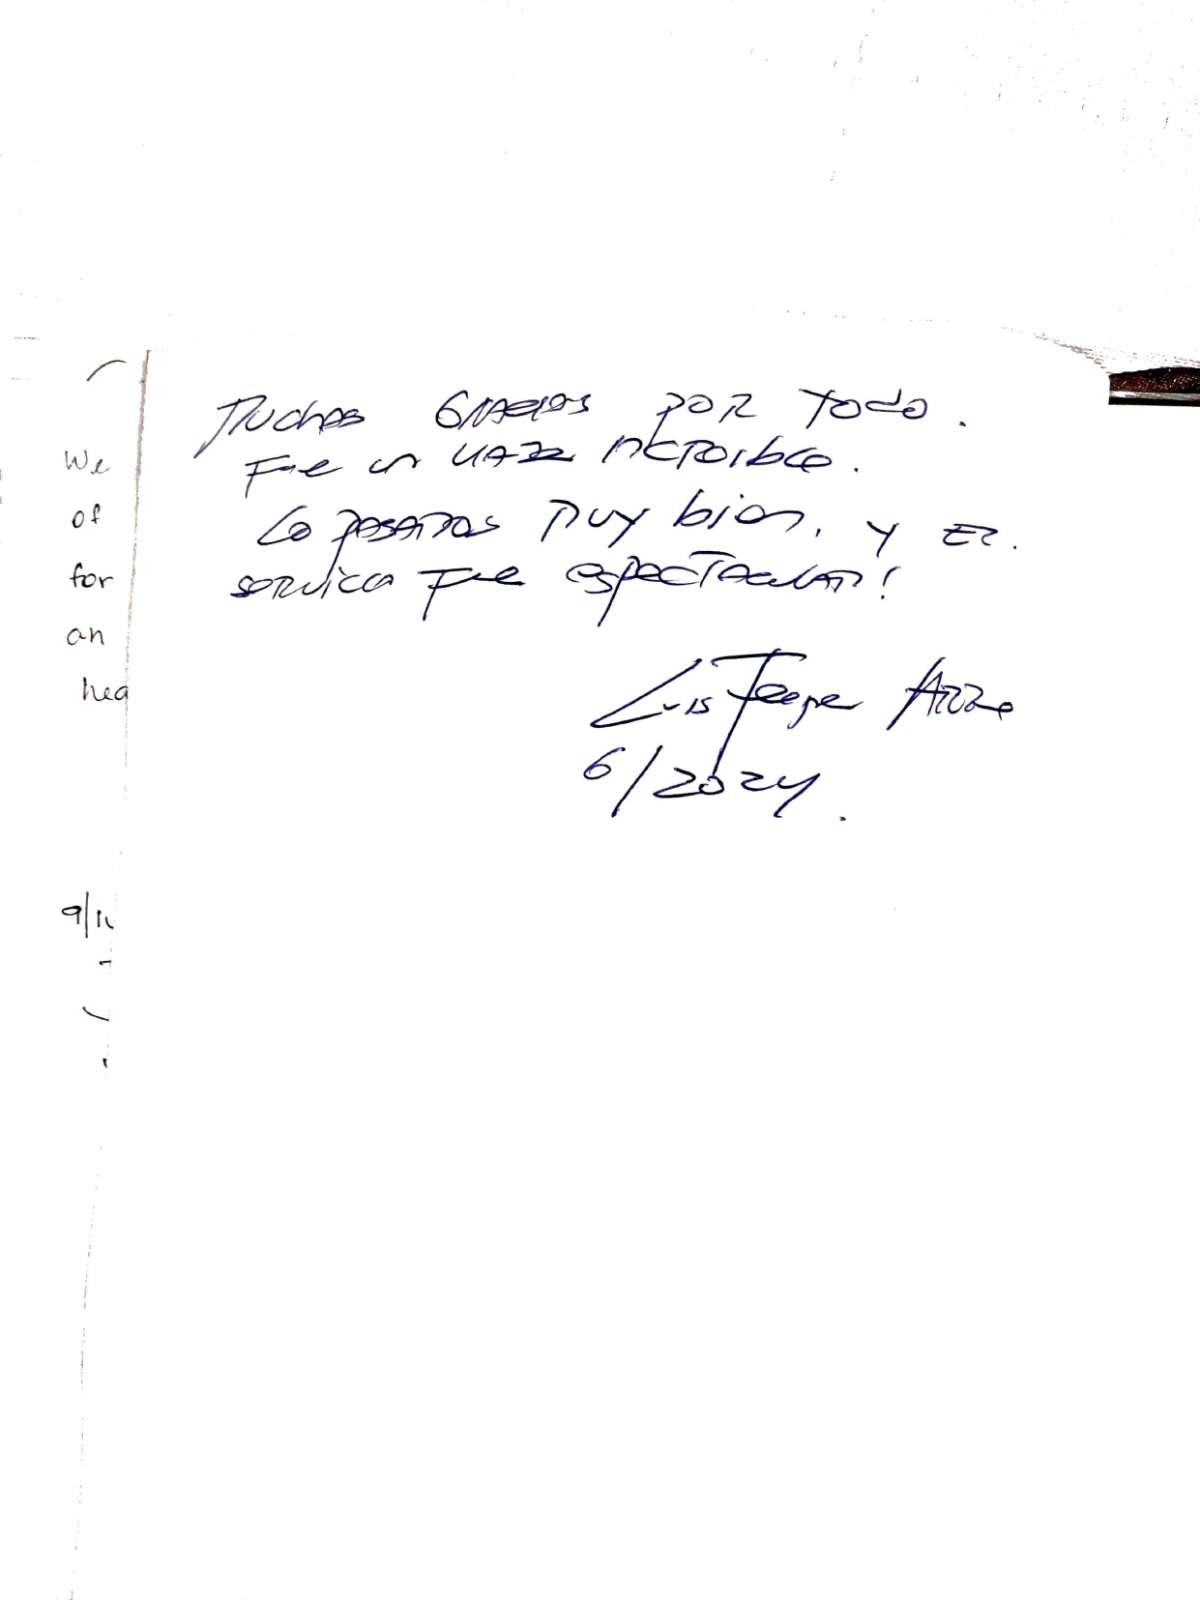 Muchas GRACIAS POR TODO.
Fue un VIAJE INCREIBLE.
Lo PASAMOS MUY bien, Y EL.
SERVICIO Fue ESPECTACULAR!
Luis Felipe
6/2024.
We
of
for
an
hea
9/1